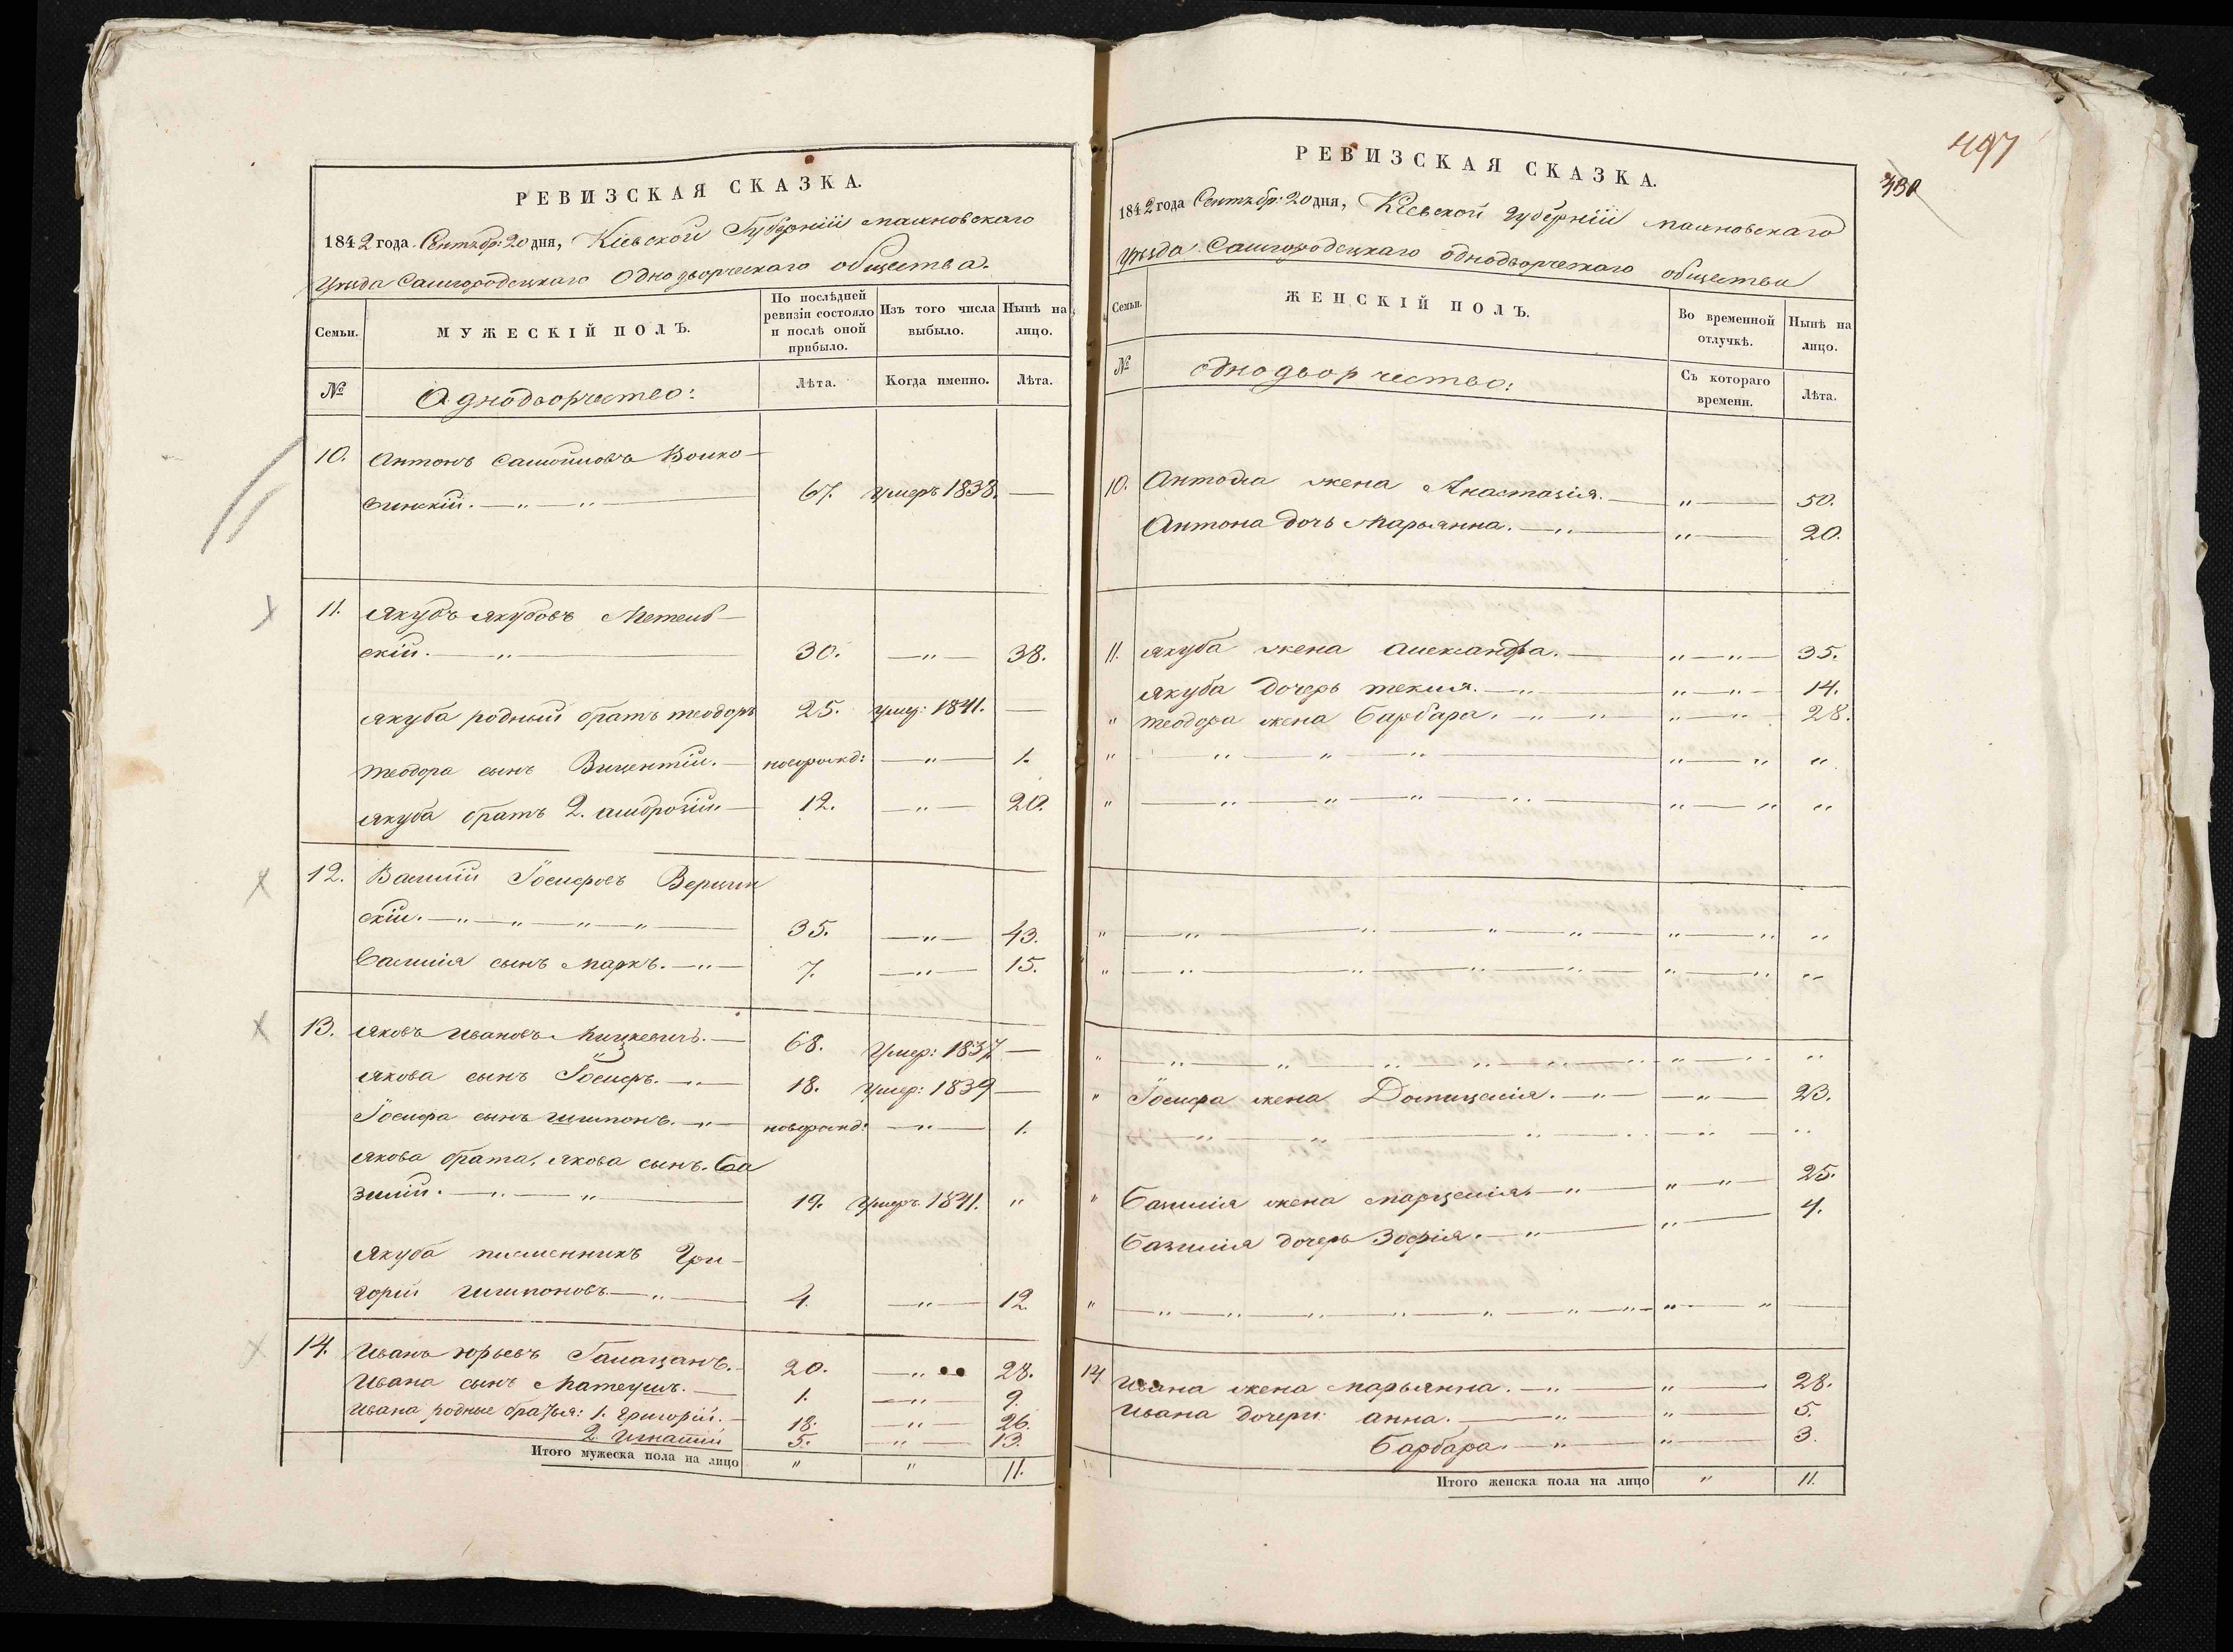 РЕВИЗСКАЯ СКАЗКА.
1842 года Сентябр: 20 дня, Кіевской Губерніи махновскаго
уѣзда Самгородецкаго Однодворческаго общества.
Семьи. МУЖЕСКІЙ ПОЛЪ. По послѣдней ревизіи состояло и послѣ оной прибыло. Изъ того числа выбыло. Нынѣ на лицо.
№ Однодворчество: Лѣта. Когда именно. Лѣта.
10. Антонъ Самойловъ
синскій. — „ — „ — 67. умеръ 1838. —
11. Якубъ Якубовъ
скій. — „ — 30. — „ — 38.
Якуба родный братъ теодоръ 25. умер: 1841. —
теодора сынъ Вицентій. — новорожд: — „ — 1.
Якуба братъ 2. амброзій — 12. — „ — 20.
12. Василій Іосифовъ
скій. — „ — „ — „ — „ — 35. — „ — 43.
Василія сынъ Маркъ. — „ — 7. — „ — 15.
13. Яковъ Ивановъ Мицкевичъ. — 68. Умер: 1837. —
Якова сынъ Іосифъ. — „ — 18. Умер: 1839 —
Іосифа сынъ Филипонъ. — „ — новорожд: — „ — 1.
Якова брата, Якова сынъ. Ба
зилій. — „ — „ — 19. Умеръ 1841. „
Якуба племенникъ Гри-
горій Филипоновъ. — „ — 4. — „ — 12.
14. Иванъ юрьевъ Галацанъ. — 20. — „ — 28.
Ивана сынъ Матеушъ. — 1. — „ — 9.
Ивана родные братья: 1. Григорій. — 18. — „ — 26.
2. Игнатій 5. — „ — 13.
Итого мужеска пола на лицо „ „ 11.
497
РЕВИЗСКАЯ СКАЗКА.
1842 года Сентябр: 20 дня, Кіевской губерніи махновскаго
уѣзда Самгородецкаго однодворческаго общества
Семьи. ЖЕНСКІЙ ПОЛЪ. Во временной отлучкѣ. Нынѣ на лицо.
№ однодворчество: Съ котораго времени. Лѣта.
10. Антона жена Анастазія. — „ — 50.
Антона дочь Марьянна. — „ — „ — 20.
11. Якуба жена Александра. — „ — „ — 35.
Якуба дочерь текля. — „ — „ — „ — 14.
„ теодора жена Барбара. — „ — „ — „ — „ — 28.
„ — „ — „ — „ — „ — „ „
„ — „ — „ — „ — „ — „ — „ „
„ — „ — „ — „ — „ — „ — „ „
„ — „ — „ — „ — „ — „ — „ „
„ — „ — „ — „ — „ — „ — „ — „ „
„ Іосифа жена Домицелія. — „ — — „ — 23.
— „ — „ — „ — „ — „ — „
„ Базилія жена марцелія. — „ — „ — „ — 25.
Базилія дочерь Зофія. — „ — „ — 4.
„ — „ — „ — „ — „ — „ — „ — „ — „ — „ —
14 Ивана жена марьянна. — „ — „ — 28.
Ивана дочери: анна. — „ — „ — 5.
Барбара. — „ — „ — 3.
Итого женска пола на лицо „ 11.